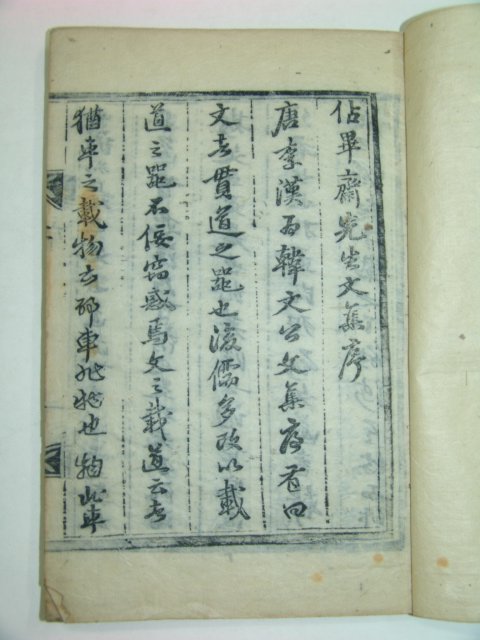 佔畢齋先生文集序
唐李漢為韓文公文集序有曰
文者貫道之器也後儒多改以載
道之器不佞窃惑焉文之載道云者
猶車之載物云耶車非物也物非車